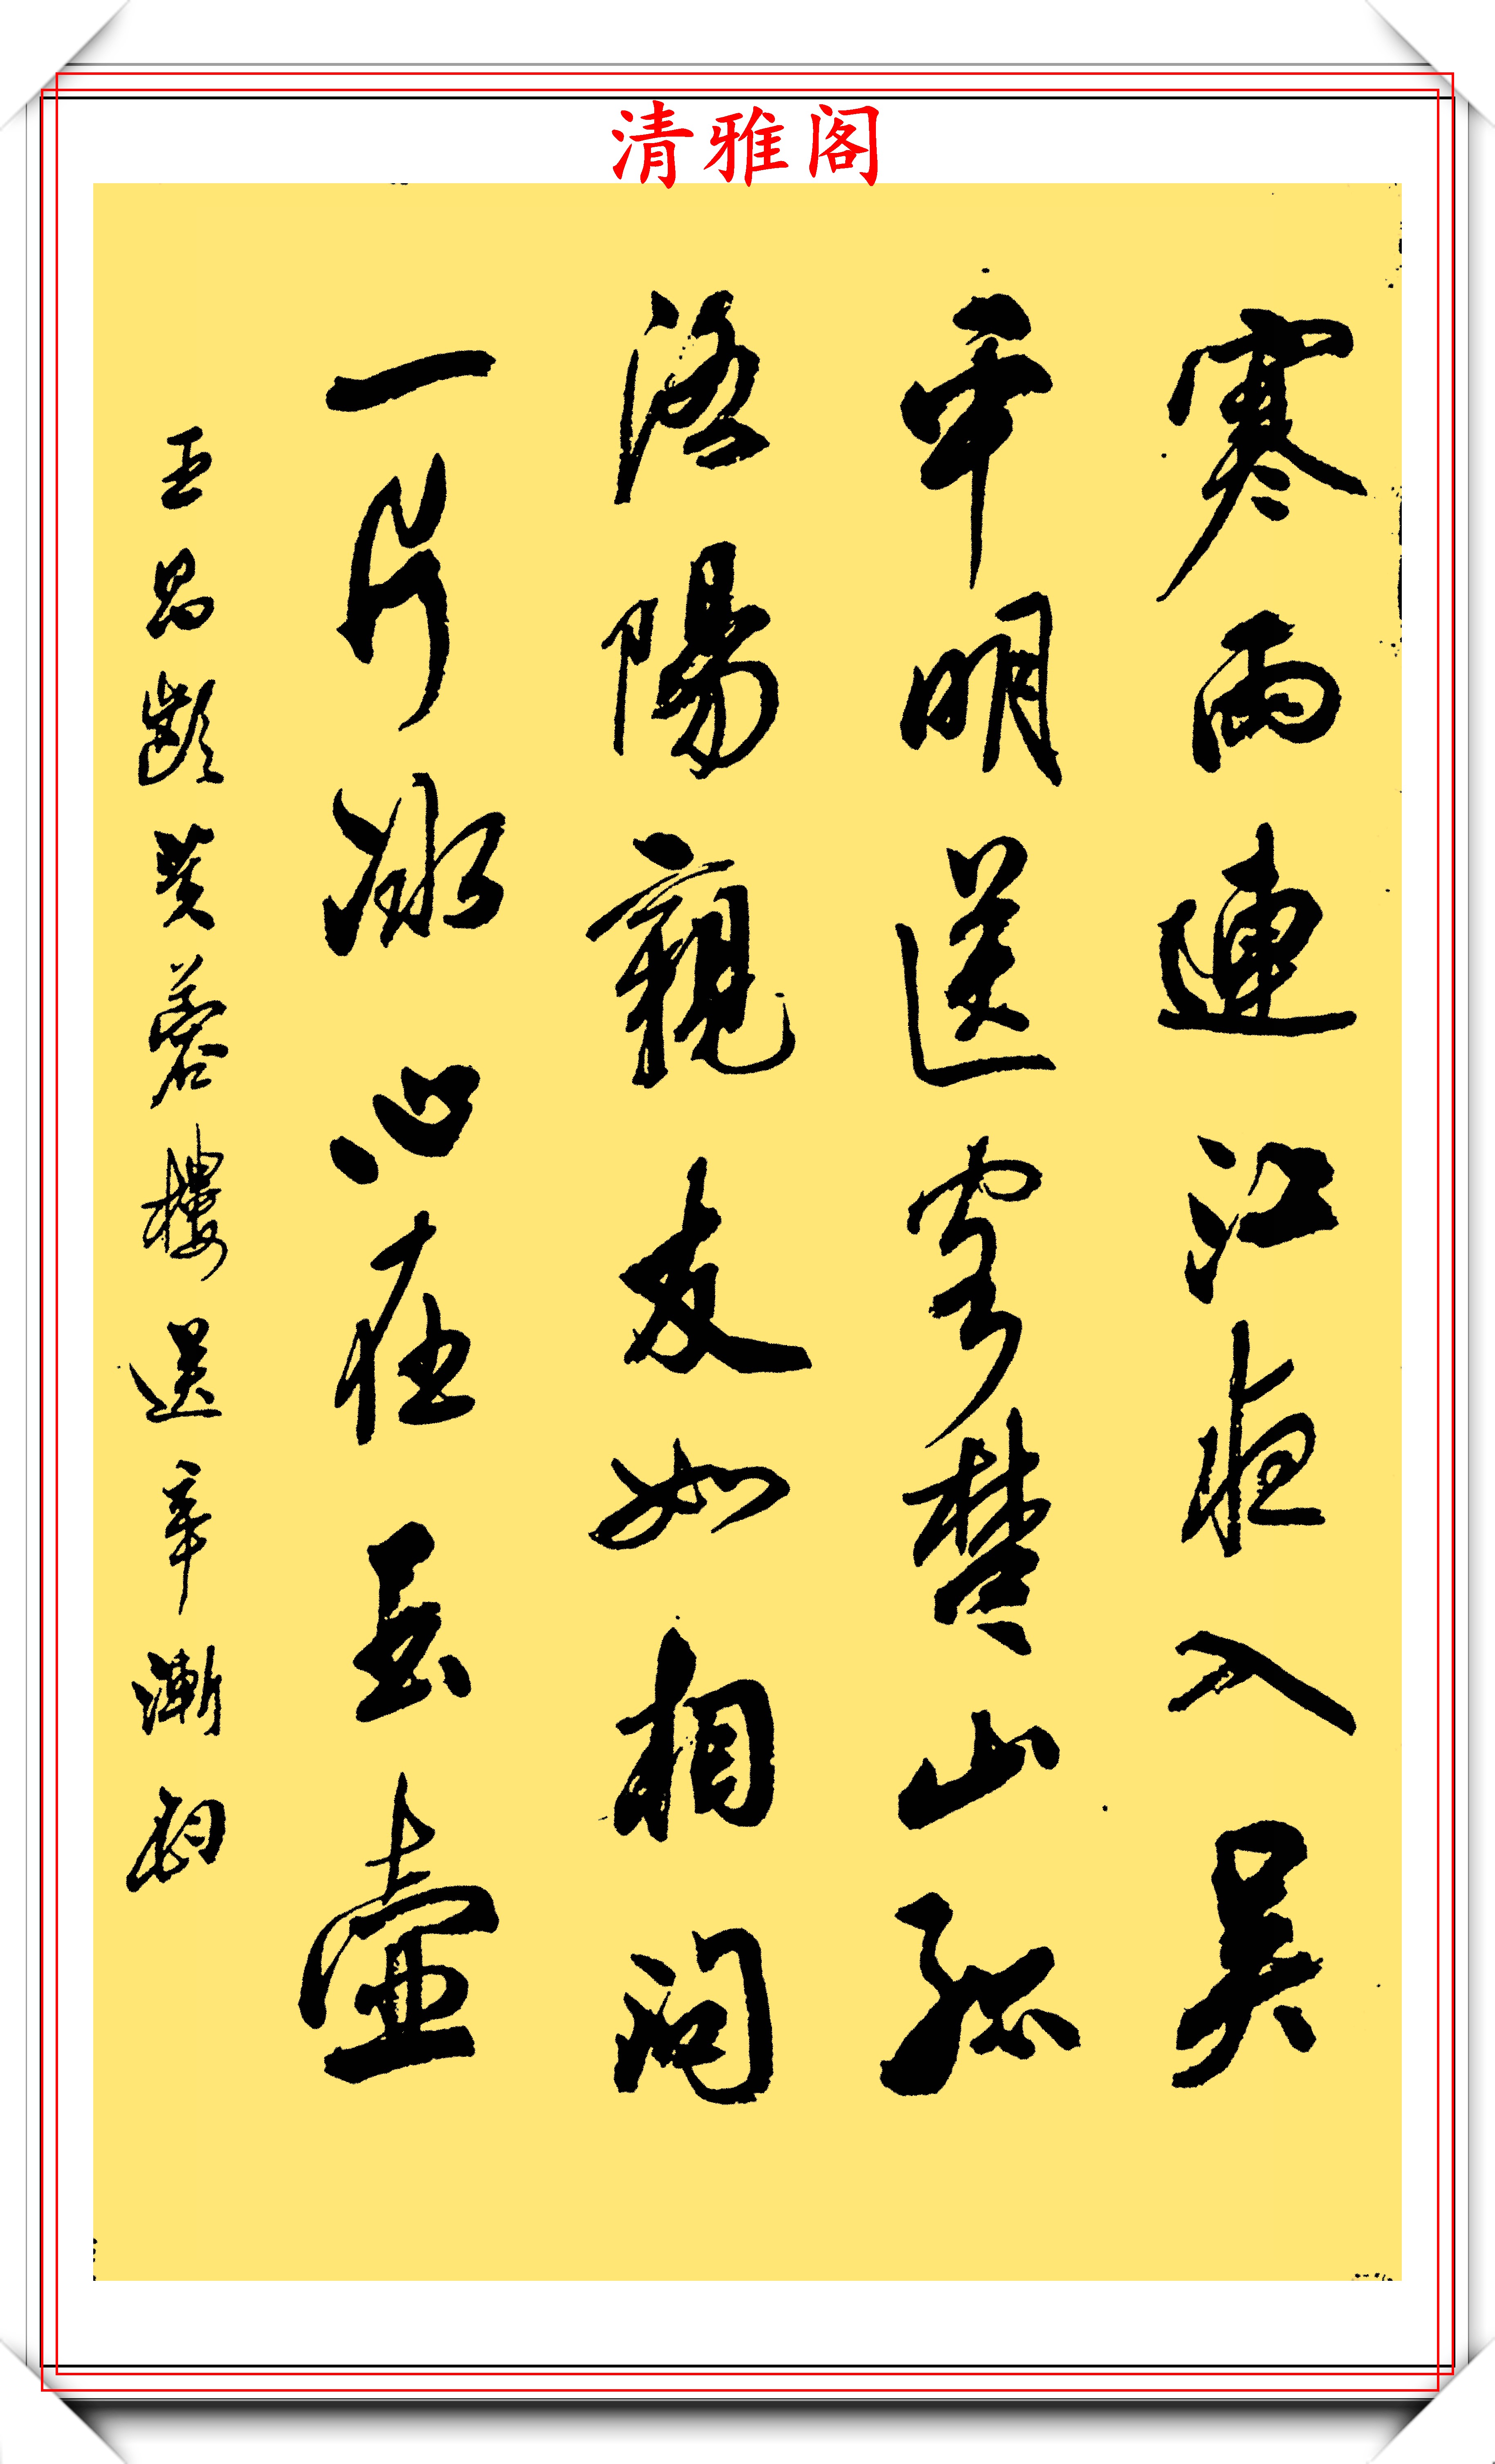 清雅阁
寒雨連江夜入吳
平明送客楚山孤
洛陽親友如相問
一片冰心在玉壺
王昌齡芙蓉樓送辛漸